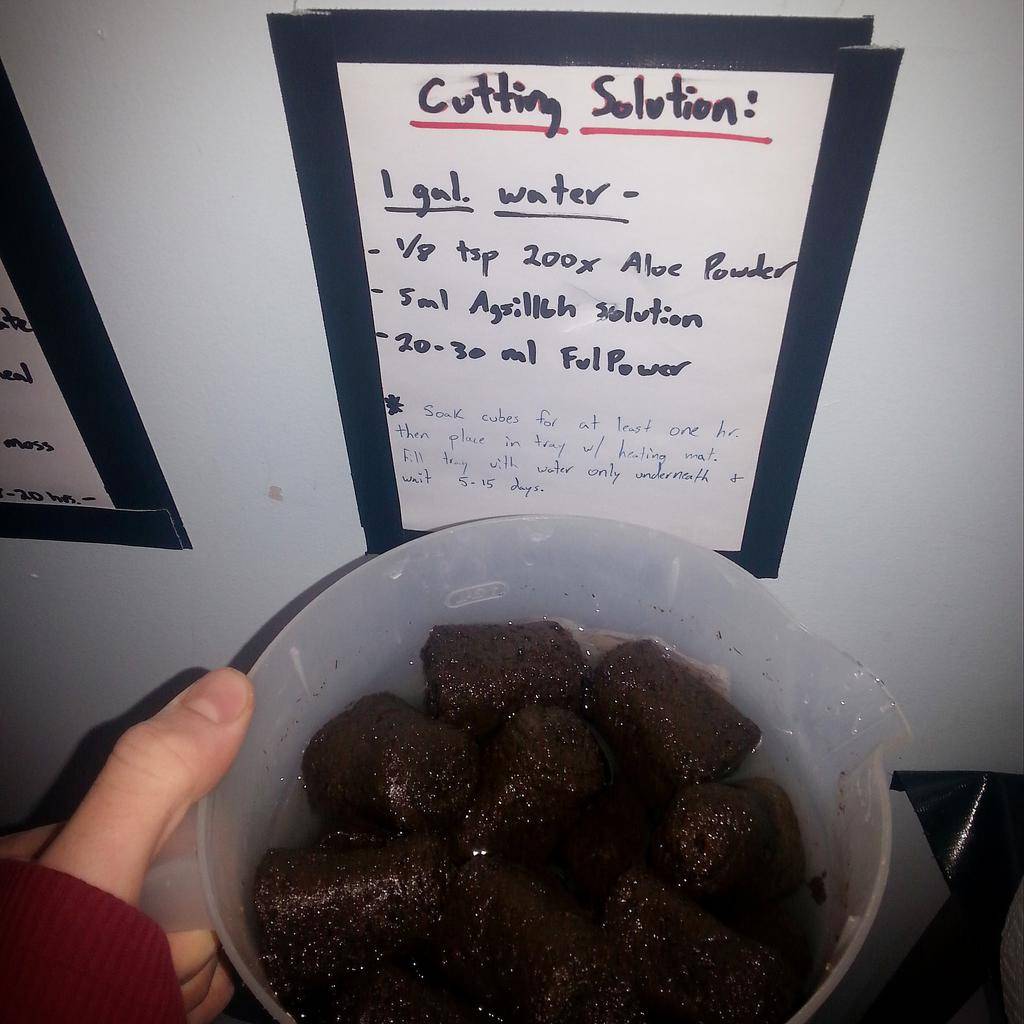 Cutting Solution:
1 gal. water -
- 1/8 tsp 200x Aloe Powder
- 5ml Agsil16h solution
- 20-30 ml FulPower
* Soak cubes for at least one hr.
then place in tray w/ heating mat.
Fill tray with water only underneath &
wait 5-15 days.
moss
-20 hrs.-